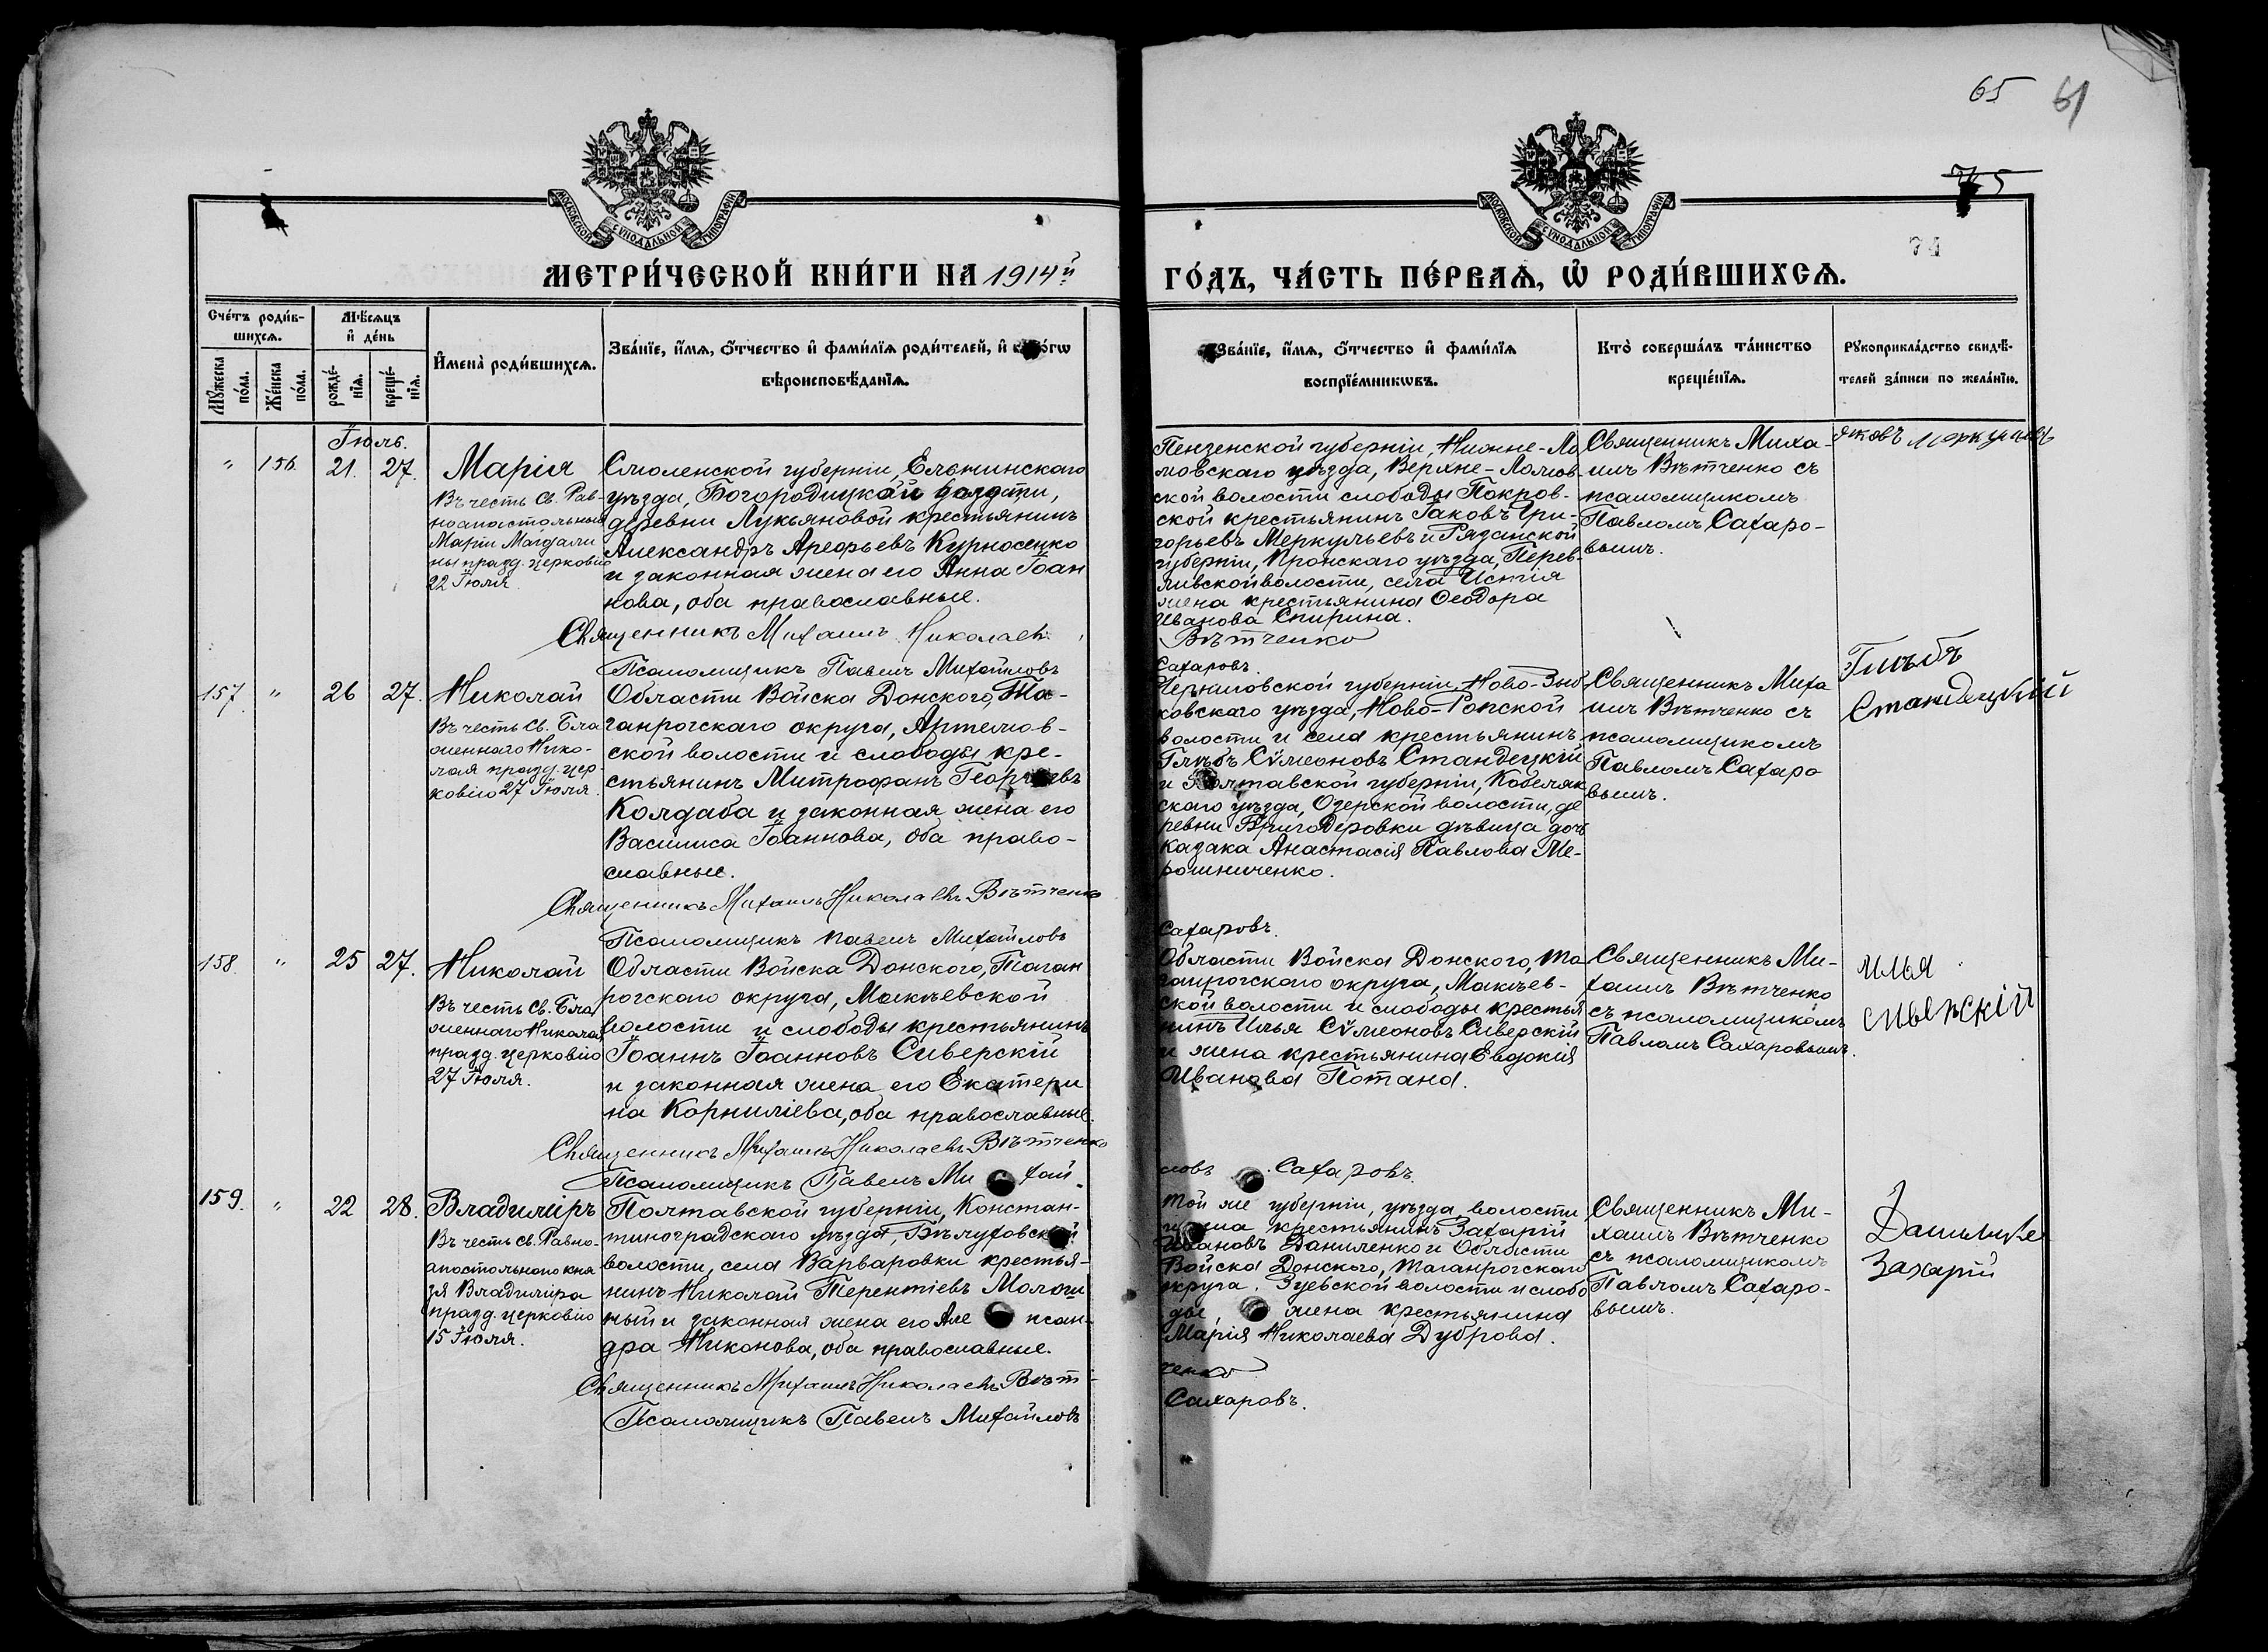 65 61
75
74
МОСКОВСКОЙ СѴНОДАЛЬНОЙ ТИПОГРАФІИ
МОСКОВСКОЙ СѴНОДАЛЬНОЙ ТИПОГРАФІИ
МЕТРИ́ЧЕСКОЙ КНИ́ГИ НА 1914й
ГО́ДЪ, ЧА́СТЬ ПЕ́РВАѦ, Ѡ҆ РОДИ́ВШИХСѦ.
Сче́тъ роди́в-
шихсѧ.
Мꙋ́жеска по́ла.
Же́нска по́ла.
Мѣ́сѧцъ
и҆ де́нь
рожде́-
нїѧ.
креще́-
нїѧ.
И҆мена̀ роди́вшихсѧ.
Зва́нїе, и҆́мѧ, ѻ҆́тчество и҆ фами́лїѧ роди́телей, и҆ како́гѡ
вѣроисповѣ́данїѧ.
Зва́нїе, и҆́мѧ, ѻ҆́тчество и҆ фами́лїѧ
воспрїе́мникѡвъ.
Кто̀ соверша́лъ та́инство
креще́нїѧ.
Рꙋкоприкла́дство свидѣ́-
телей за́писи по жела́нїю.
Іюль.
" 156. 21. 27. Марія
Въ честь Св. Рав-
ноапостольныя
Маріи Магдали
ны празд. церковію
22 Іюля.
Смоленской губерніи, Ельнинскаго
уѣзда, Богородицкой волости,
деревни Лукьяновой крестьянинъ
Александръ Арефьевъ Курносенко
и законная жена его Анна Іоан
нова, оба православные.
Священникъ Михаилъ Николаевъ
Псаломщикъ Павелъ Михайловъ
Пензенской губерніи, Нижне-Ло
мовскаго уѣзда, Верхне-Ломов-
ской волости слободы Покров-
ской крестьянинъ Іаковъ Гри-
горьевъ Меркульевъ и Рязанской
губерніи, Пронскаго уѣзда, Перев-
лѣвской волости, села Истія
жена крестьянина Ѳеодора
Иванова Спирина.
Вѣтченко
Сахаровъ.
Священникъ Миха-
илъ Вѣтченко съ
псаломщикомъ
Павломъ Сахаро-
вымъ.
Яковъ Меркульевъ
157. " 26 27. Николай
Въ честь Св. Бла
женнаго Нико-
лая празд. цер
ковію 27 Іюля.
Области Войска Донского, Та-
ганрогскаго округа, Артемов-
ской волости и слободы кре-
стьянинъ Митрофанъ Георгіевъ
Колдаба и законная жена его
Василиса Іоаннова, оба право-
славные.
Священникъ Михаилъ Николаевъ Вѣтченко
Псаломщикъ Павелъ Михайловъ
Черниговской губерніи, Ново-Зыб
ковскаго уѣзда, Ново-Ропской
волости и села крестьянинъ
Глѣбъ Сѵмеоновъ Стандецкій
и Полтавской губерніи, Кобеляк
скаго уѣзда, Озерской волости, де
ревни Бригодеровки дѣвица дочь
казака Анастасія Павлова Ме-
рошниченко.
Сахаровъ.
Священникъ Миха
илъ Вѣтченко съ
псаломщикомъ
Павломъ Сахаро
вымъ.
Глѣбъ
Стандецкій
158. " 25 27. Николай
Въ честь Св. Бла
женнаго Николая
празд. церковію
27 Іюля.
Области Войска Донского, Таган
рогскаго округа, Макѣевской
волости и слободы крестьянинъ
Іоаннъ Іоанновъ Сиверскій
и законная жена его Екатери
на Корниліева, оба православные.
Священникъ Михаилъ Николаевъ Вѣтченко
Псаломщикъ Павелъ Ми хай-
Области Войска Донского, Та
ганрогскаго округа, Макѣев-
ской волости и слободы крестья
нинъ Илья Сѵмеоновъ Сиверскій
и жена крестьянина Евдокія
Иванова Потана.
ловъ Сахаровъ.
Священникъ Ми-
хаилъ Вѣтченко
съ псаломщикомъ
Павломъ Сахаровымъ.
Илья
159. " 22 28. Владиміръ
Въ честь св. Равно-
апостольнаго кня
зя Владиміра
празд. церковію
15 Іюля.
Полтавской губерніи, Констан-
тиноградскаго уѣзда, Бѣлуховской
волости, села Варваровки крестья-
нинъ Николай Терентіевъ Молош
ный и законная жена его Але ксан-
дра Никонова, оба православные.
Священникъ Михаилъ Николаевъ Вѣт-
Псаломщикъ Павелъ Михайловъ
Той же губерніи, уѣзда, волости
и села крестьянинъ Захарій
Ивановъ Даниленко и Области
Войска Донского, Таганрогскаго
округа, Зуевской волости и слобо
ды, жена крестьянина
Марія Николаева Дуброва.
ченко
Сахаровъ.
Священникъ Ми-
хаилъ Вѣтченко
съ псаломщикомъ
Павломъ Сахаро-
вымъ.
Захарій